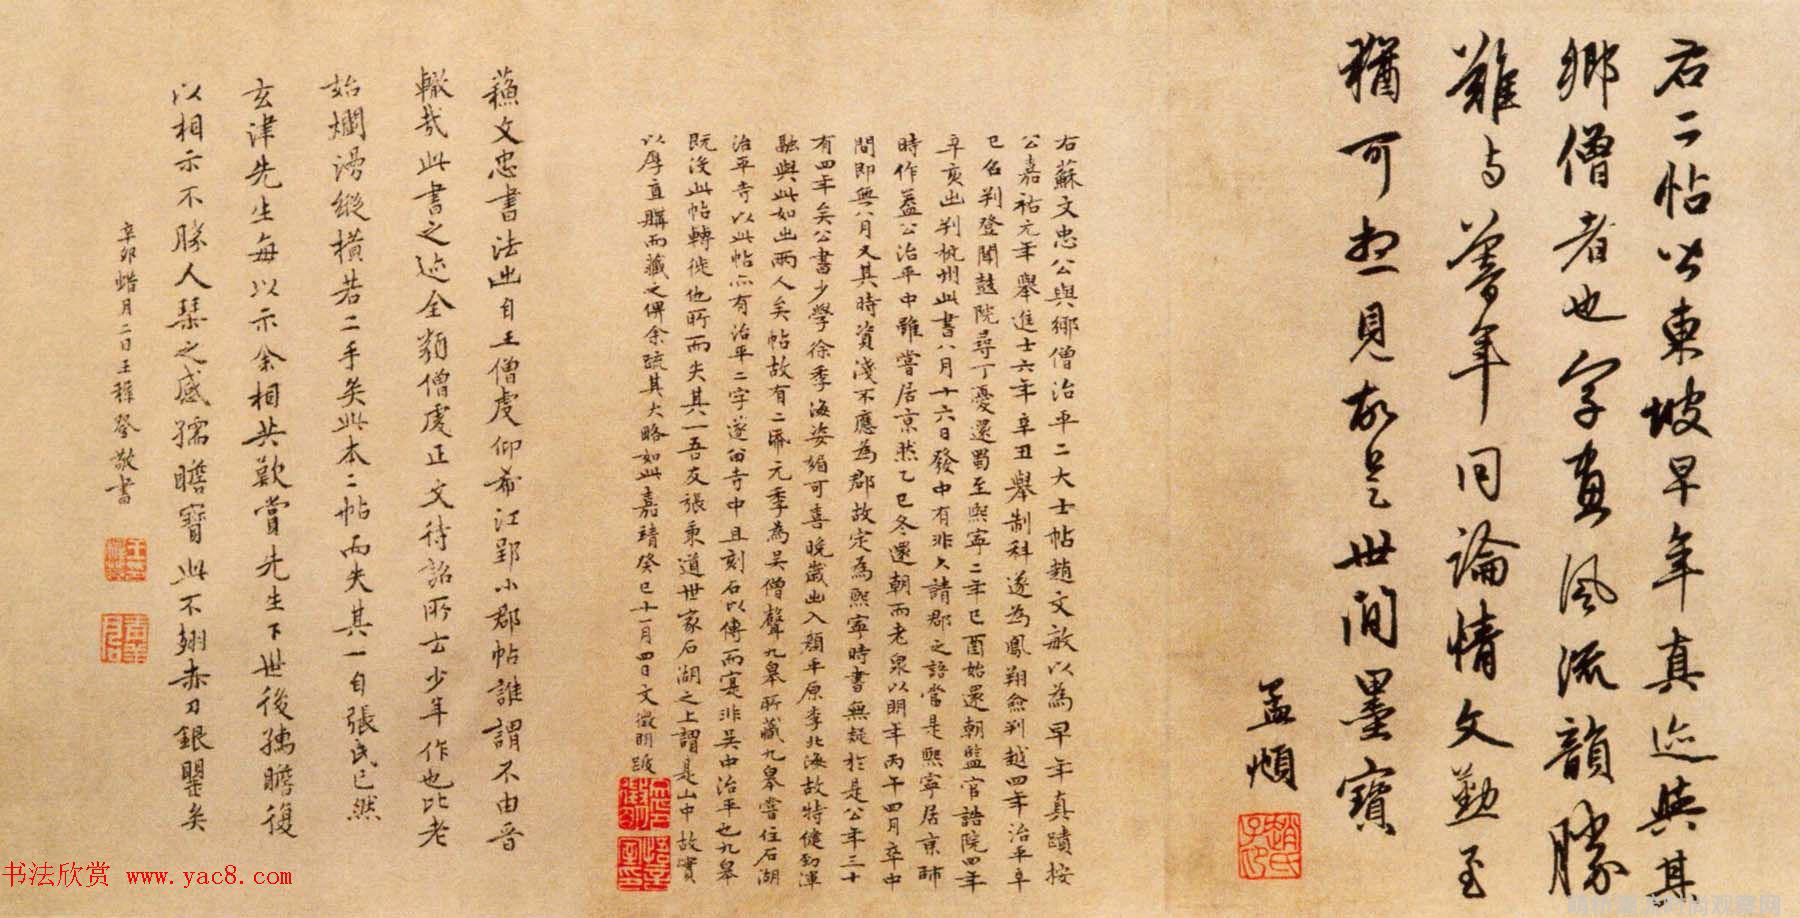 右二帖皆東坡早年真迹與其
鄉僧者也字畫風流韻勝
難与暮年同論情文勤至
猶可想見故是世間墨寶
孟頫
趙氏子昂
右蘇文忠公與鄉僧治平二大士帖趙文敏以為早年真蹟按
公嘉祐元年舉進士六年辛丑舉制科遂為鳳翔僉判越四年治平
已召判登聞鼓院尋丁憂還蜀至熙寧二年己酉始還朝監官誥院四年
辛亥出判杭州此書八月十六日發中有非久請郡之語當是熙寧居京師
時作蓋公治平中雖嘗居京然乙巳冬還朝而老泉以明年丙午四月卒中
間即無八月又其時資淺不應為郡故定為熙寧時書無疑於是公年三十
有四年矣公書少學徐季海姿媚可喜晚歲出入顏平原李北海故特健勁渾
融與此如出兩人矣帖故有二紙元季為吳僧聲九皋所藏九皋嘗住石湖
治平寺以此帖亦有治平二字遂留寺中且刻石以傳而寔非吳中治平也九皋
既沒此帖轉徙他所而失其一吾友張秉道世家石湖之上謂是山中故實
以厚直購而藏之俾余疏其大略如此嘉靖癸巳十一月四日文徵明跋
蘇文忠書法出自王僧虔仰希江郢小郡帖誰謂不由晉
轍哉此書之迹全類僧虔正文待詔所云少年作也比老
始爛漫縱橫若二手矣此本二帖而失其一自張氏已然
玄津先生每以示余相共歎賞先生下世後孺瞻復
以相示不勝人琴之感孺瞻寶此不翅赤刀銀甖矣
辛卯蜡月二日王穉登敬書
书法欣赏 www.yac8.com